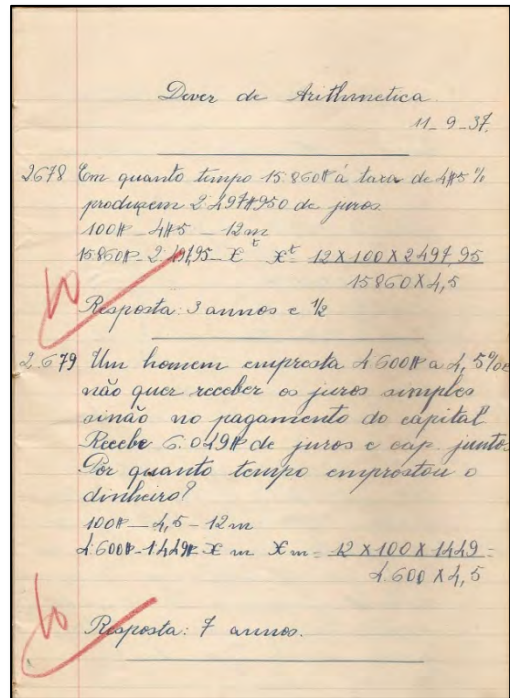 Dever de Arithmetica
11-9-37.
2678 Em quanto tempo 15.860$ á taxa de 4$5%
produzem 2.497$950 de juros.
100$ - 4$5 - 12m
15.860$ - 2.497,95 - X t X t = 12 X 100 X 2497 95
15860 X 4,5
10
Resposta: 3 annos e 1/2
2.679 Um homem empresta 4.600$ a 4,5% e
não quer receber os juros simples
sinão no pagamento do capital
Recebe 6.049$ de juros e cap. juntos
Por quanto tempo emprestou o
dinheiro?
100$ - 4,5 - 12m
4.600$ - 1.449$ X m X m = 12 X 100 X 1449 =
4.600 X 4,5
10
Resposta: 7 annos.